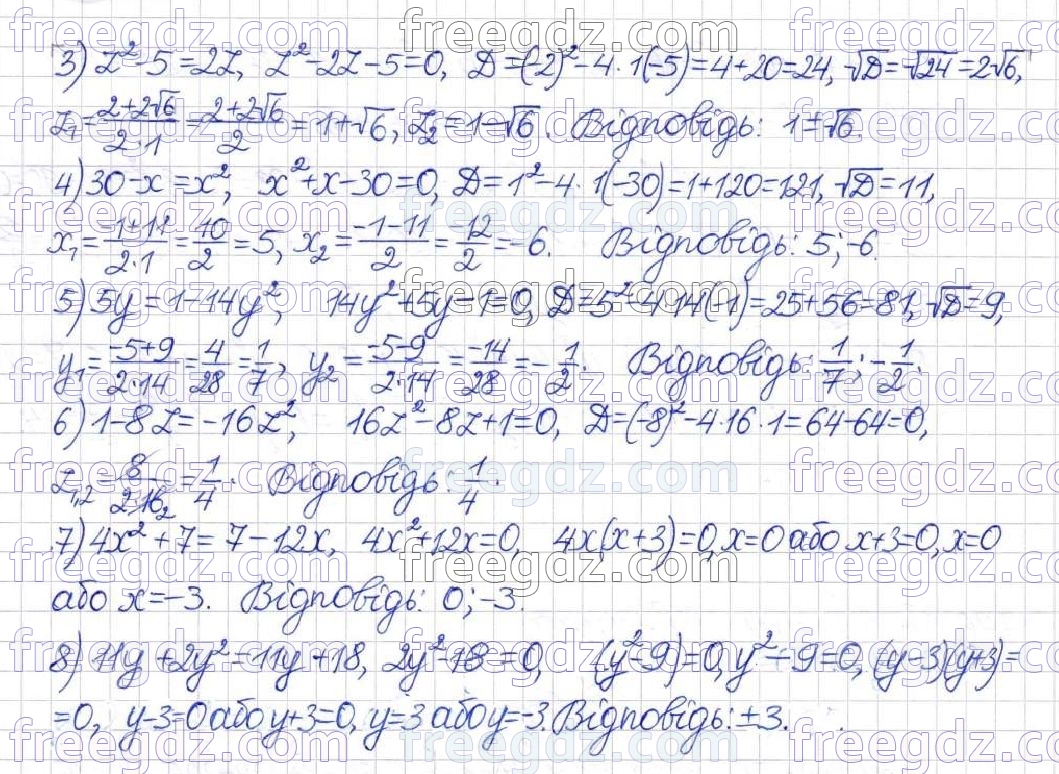 3) z² - 5 = 2z, z² - 2z - 5 = 0, D = (-2)² - 4 · 1(-5) = 4 + 20 = 24, √D = √24 = 2√6,
z₁ = (2+2√6)/(2·1) = (2+2√6)/2 = 1+√6, z₂ = 1-√6. Відповідь: 1±√6.
4) 30 - x = x², x² + x - 30 = 0, D = 1² - 4 · 1(-30) = 1 + 120 = 121, √D = 11,
x₁ = (-1+11)/(2·1) = 10/2 = 5, x₂ = (-1-11)/2 = -12/2 = -6. Відповідь: 5; -6.
5) 5y = 1 - 14y², 14y² + 5y - 1 = 0, D = 5² - 4·14(-1) = 25 + 56 = 81, √D = 9,
y₁ = (-5+9)/(2·14) = 4/28 = 1/7, y₂ = (-5-9)/(2·14) = -14/28 = -1/2. Відповідь: 1/7; -1/2.
6) 1 - 8z = -16z², 16z² - 8z + 1 = 0, D = (-8)² - 4·16·1 = 64 - 64 = 0,
z₁,₂ = 8/(2·16) = 1/4. Відповідь: 1/4.
7) 4x² + 7 = 7 - 12x, 4x² + 12x = 0, 4x(x+3) = 0, x = 0 або x+3 = 0, x = 0
або x = -3. Відповідь: 0; -3.
8) 11y + 2y² = 11y + 18, 2y² - 18 = 0, (y² - 9) = 0, y² - 9 = 0, (y-3)(y+3) =
= 0, y-3 = 0 або y+3 = 0, y = 3 або y = -3. Відповідь: ±3.
freegdz.com